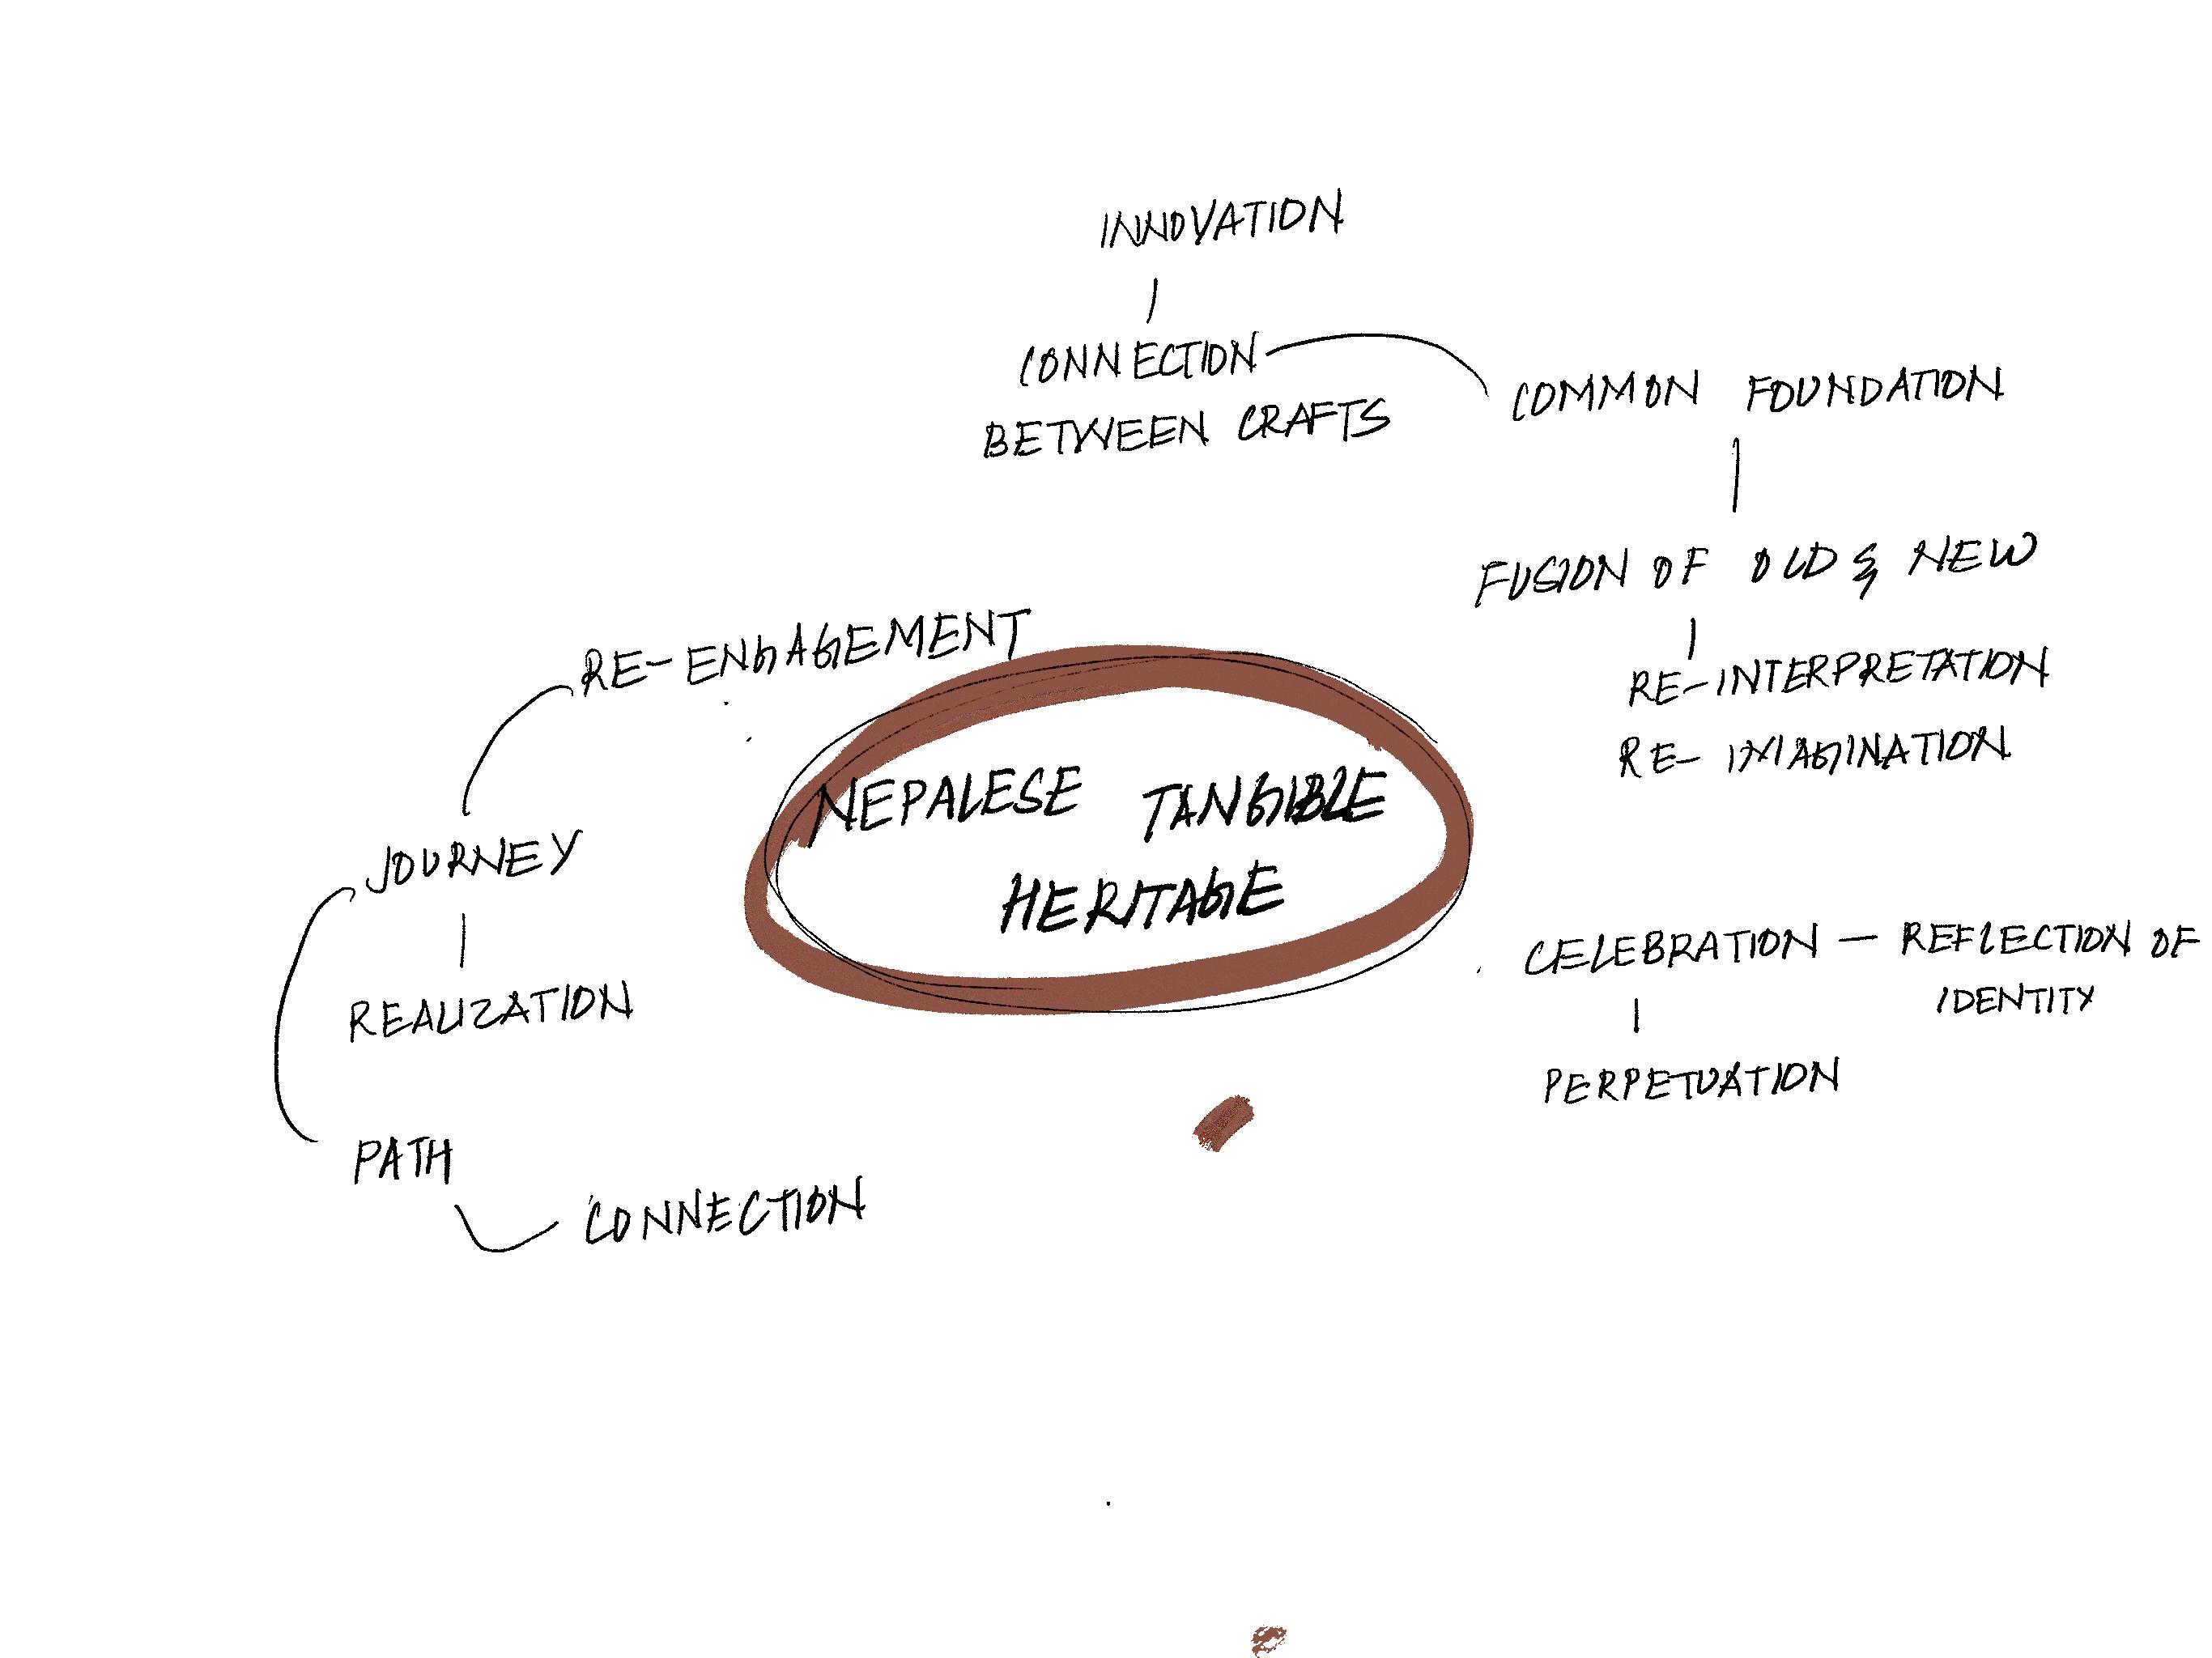 INNOVATION
CONNECTION
BETWEEN CRAFTS
COMMON FOUNDATION
FUSION OF OLD & NEW
RE-INTERPRETATION
RE-IMAGINATION
RE-ENGAGEMENT
NEPALESE TANGIBLE
HERITAGE
JOURNEY
REALIZATION
PATH
CONNECTION
CELEBRATION — REFLECTION OF
IDENTITY
PERPETUATION